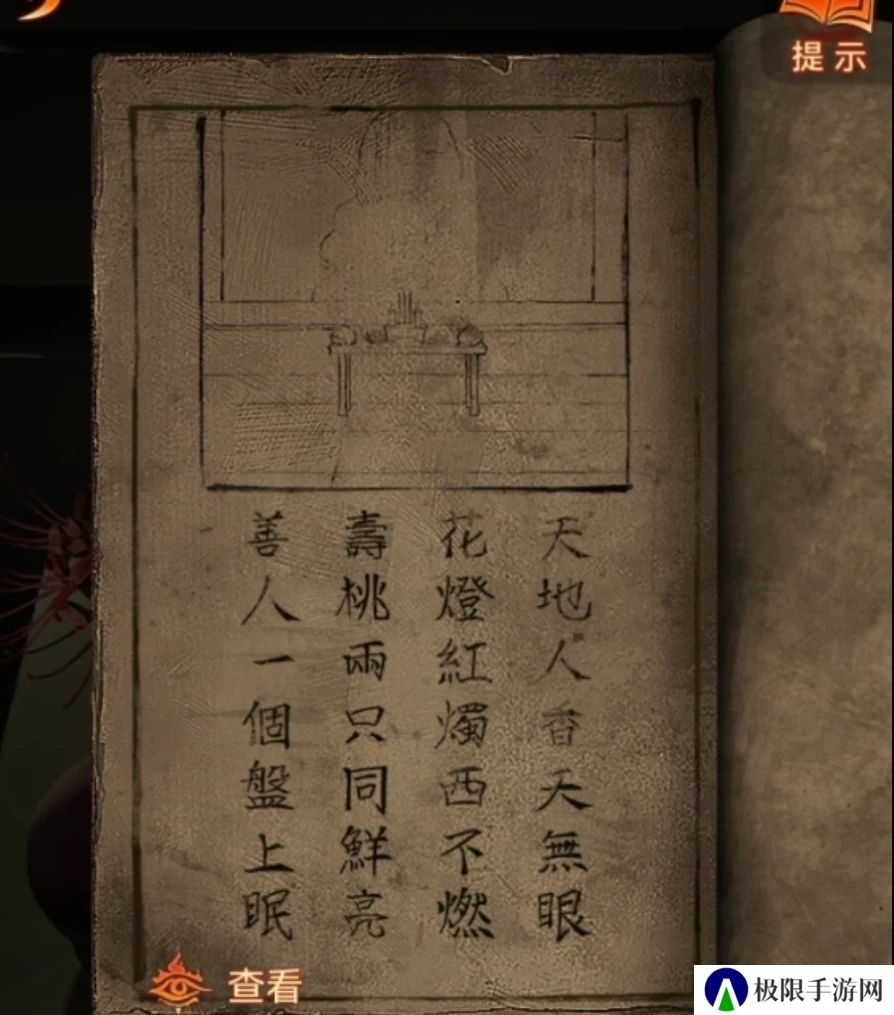 提示
天地人香天無眼
花燈紅燭西不燃
壽桃兩只同鮮亮
善人一個盤上眠
查看
极限手游网